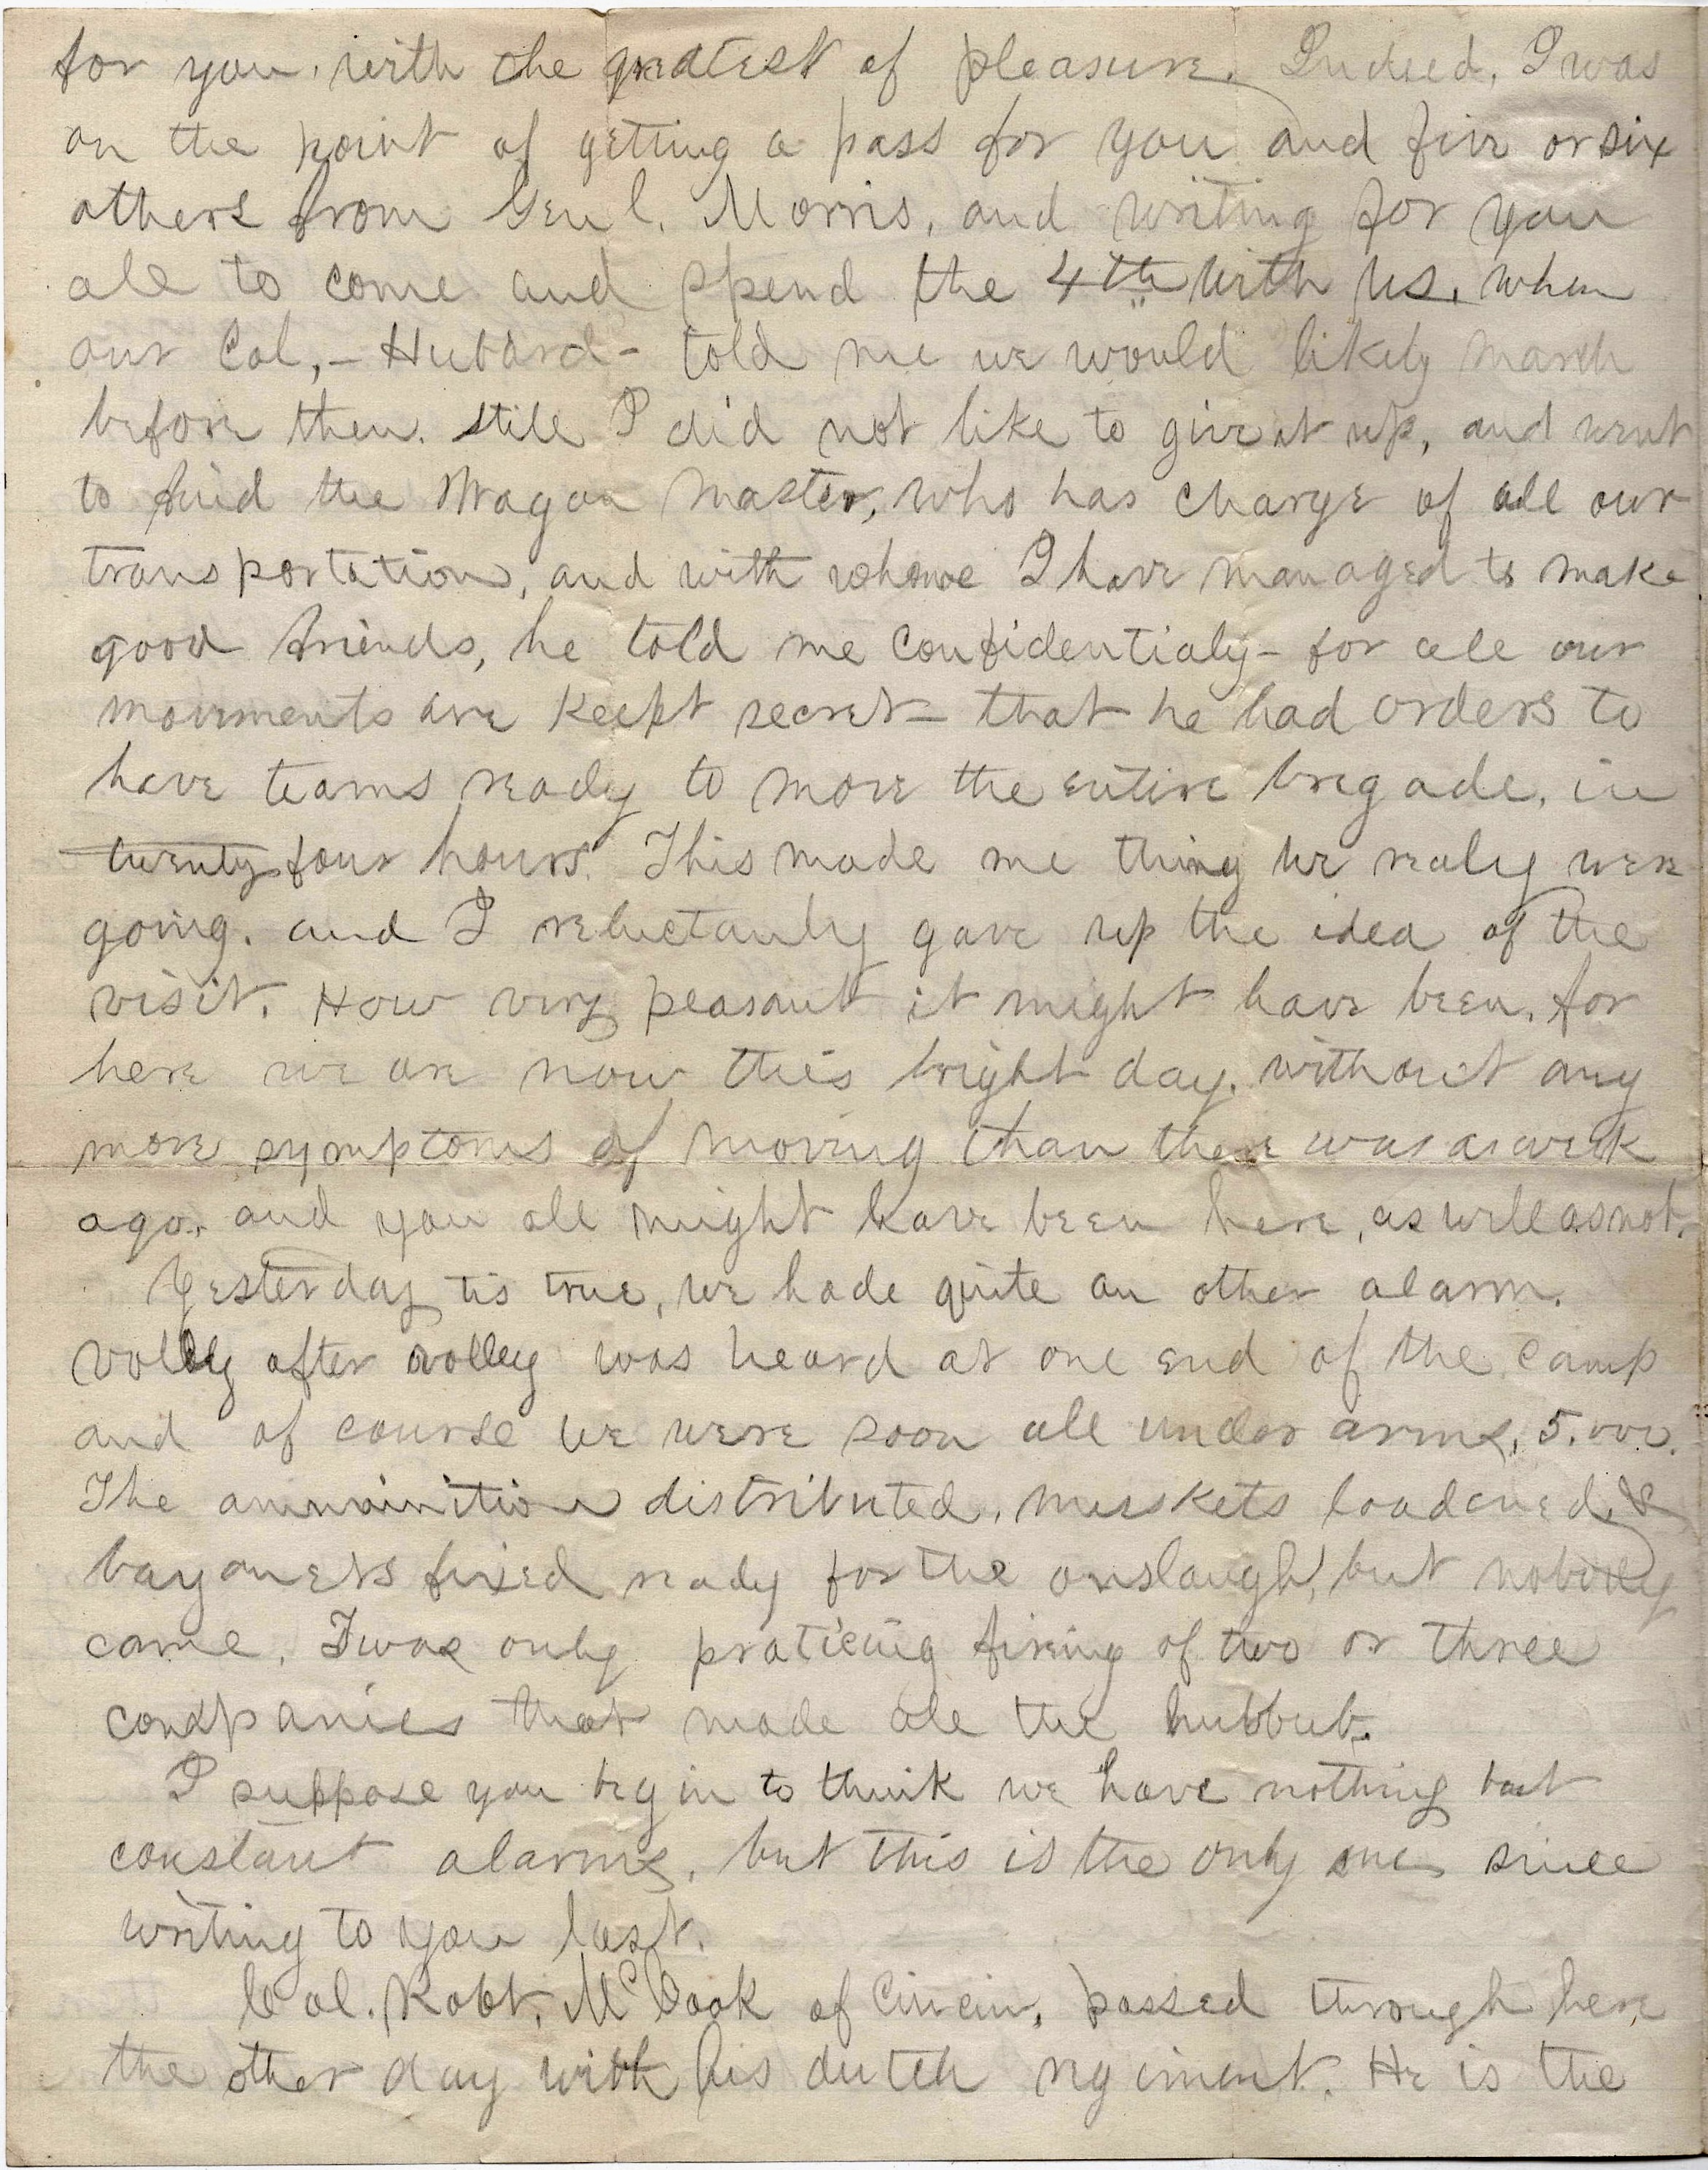 for you, with the greatest of pleasure. Indeed, I was
on the point of getting a pass for you and five or six
others from Genl. Morris, and writing for you
all to come and spend the 4th with us, when
our Col, – Hubbard – told me we would likely march
before then. still I did not like to give it up, and went
to find the Wagon Master, who has charge of all our
transportation, and with whome I have managed to make
good friends, he told me confidentialy – for all our
movements are keept secret – that he had orders to
have teams ready to move the entire brigade, in
twenty four hours. This made me thing we realy were
going. and I reluctantly gave up the idea of the
visit. How very peasant it might have been, for
here we are now this bright day, without any
more symptoms of moving than there was a week
ago. and you all might have been here, as well as not.
Yesterday tis true, we hade quite an other alarm.
volly after volley was heard at one end of the camp
and of course we were soon all under arms, 5.000.
The ammunition distributed, muskets loadened, &
bayonets fixed ready for the onslaugh, but nobody
came. Twas only praticing firing of two or three
companies that made all the hubbub.
I suppose you begin to think we have nothing but
constant alarms, but this is the only one since
writing to you last.
Col. Robt. McCook of Cincin, passed through here
the other day with his dutch regiment. He is the